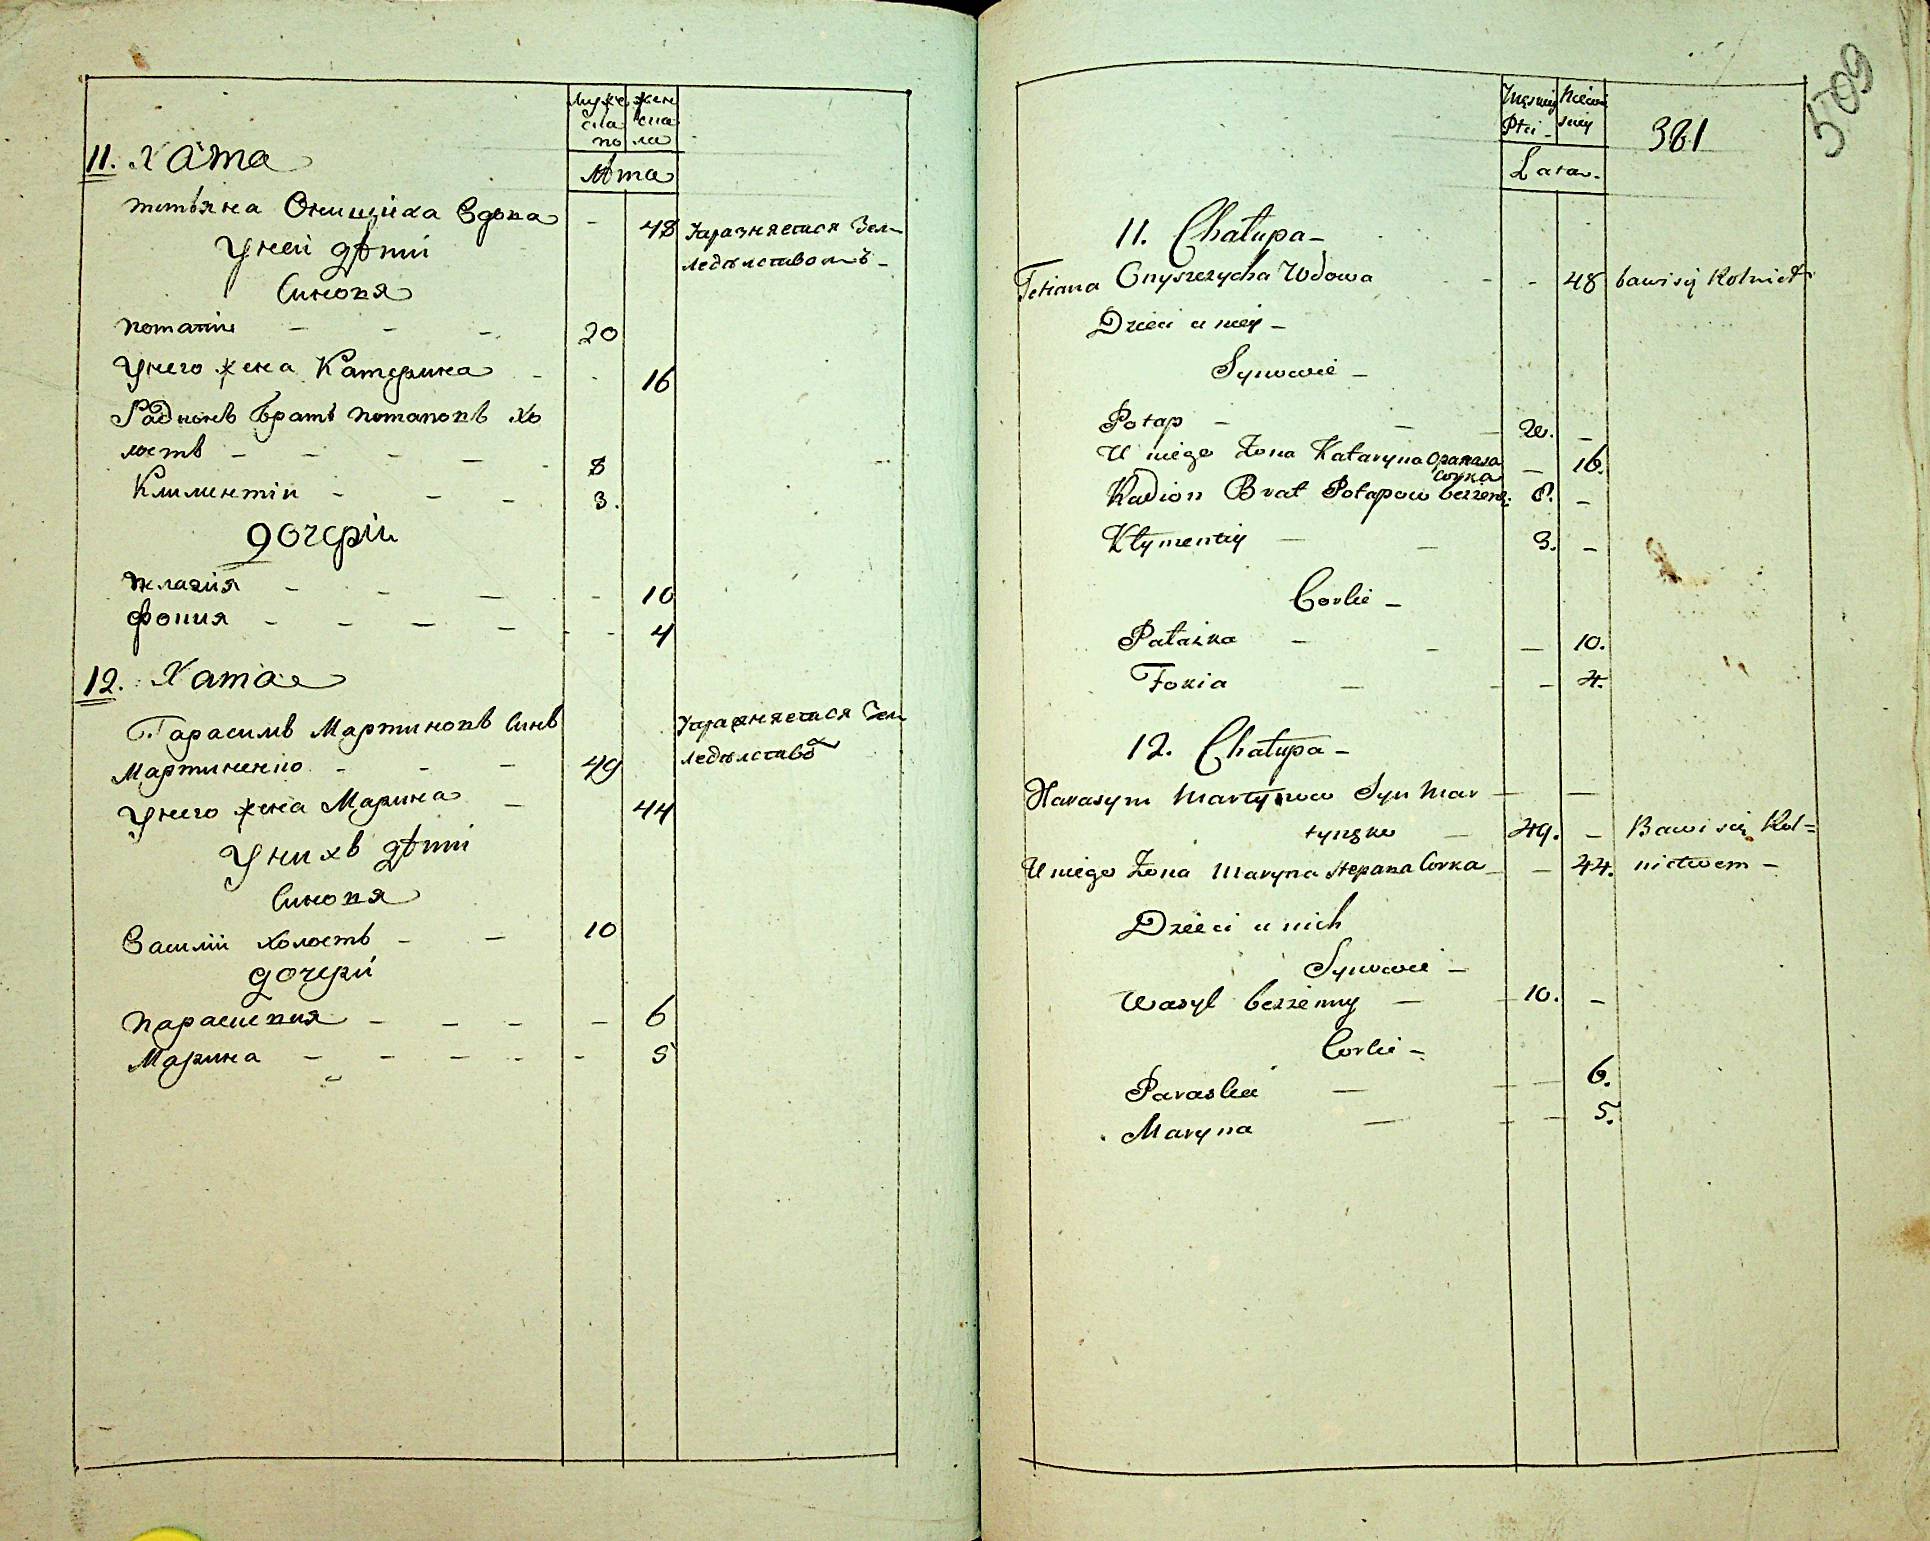 муже жен
ска ска
по ла
лѣта
11. Хата
Тетьяна Онищиха Вдова - 48 Упражняется Зем-
ледѣлствомъ -
У ней дѣти
Синовя
Потапiи - - - 20
У него жена Катерина - - 16
Радионъ Братъ Потаповъ хо
лостъ - - - - - 8
Климентiи - - - 3.
дочери
Пелагия - - - - 10
Фония - - - - - - 4
12. Хата
Гарасимъ Мартиновъ Синъ Упражняется Зем
Мартиненко - - - 49 ледѣлство
У него жена Марина - 44
У нихъ дѣти
Синовя
Василiи холостъ - - 10
дочери
Параскивия - - - - 6
Марина - - - - - 5
509
Męskiey Niewi
Płci - skiey
381
Lata.
11. Chałupa -
Tetiana Onyszczycha Wdowa - - 48 bawi się Rolnict
Dzieci u niey -
Synowie -
Potap - - - 20. -
U niego Żona Kataryna Opanasa
Corka - 16.
Radion Brat Potapow bezżen. 8. -
Kłymentiy - - 3. -
Corki -
Pałażka - - - 10.
Fonia - - - 4.
12. Chałupa -
Harasym Martynow Syn Mar - -
tynęko - 49. - Bawi się Rol=
U niego Żona Maryna Stepana Corka - - 44. nictwem -
Dzieci u nich
Synowie -
Wasyl bezżenny - - 10. -
Corki -
Paraska - - - 6.
Maryna - - - 5.